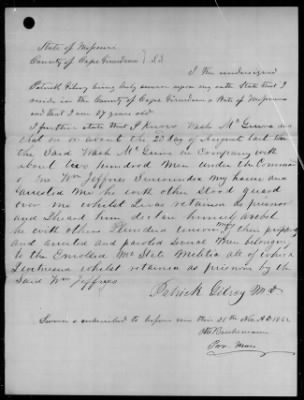 State of Missouri
County of Cape Girardeau } SS
I the undersigned
Patrick Gilroy being duly sworn upon my oath State that I
reside in the County of Cape Girardeau & State of Missouri
and that I am 47 years old
I further state that I know Wash Mc and
that on or about the 20 day of August last
the Said Wash Mc in Company with
about hundred Men under the Command
of one Wm Jeffries Surrounded my house and
arrested Me he with others Stood guard
over me whilst I was retained as prisoner
and I heard him declare himself a rebel
he with others Plundered property
and arrested and paroled Several Men belonging
to the Enrolled Mo State Militia all of which
I witnessed whilst retained as prisoner by the
Said Wm Jeffries
Patrick Gilroy M.D.
Sworn & subscribed to before me this 28th Nov A.D. 1862
Pro. Mar.